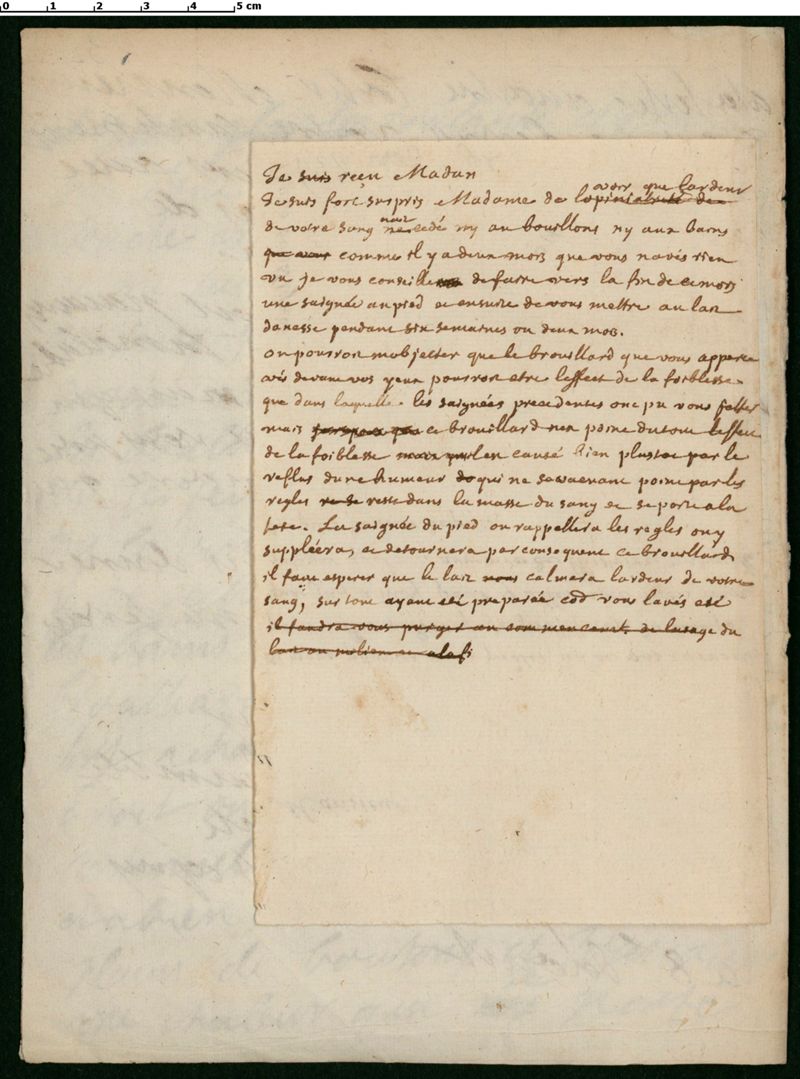 0 1 2 3 4 5 cm
Je suis reçu Madan
voir que lardeur
Je suis fort surpris Madame de lopiniatreté de
de votre sang nait cedé ny au bouillons ny aux bains
que vous comme il y a deux mois que vous navés rien
vu je vous conseille de faire vers la fin de ce mois
une saignée au pied et ensuite de vous mettre au lait
danesse pendant six semaines ou deux mois.
on pourroit mobjecter que le brouillard que vous apperce
vés devant vos yeux pourroit etre leffect de la foiblesse
que dans laquelle les saignées precedentes ont pu vous jetter
mais ce brouillard nest point du tout leffect
de la foiblesse mais il est causé bien plustot par le
reflus dune humeur qui ne sevacuant point par les
regles reste dans la masse du sang et se porte a la
tete. La saignée du pied ou rappellera les regles ou y
suppléera, et detournera par consequent ce brouillard
il faut esperer que le lait calmera lardeur de votre
sang, sur tout ayant eté preparée cõe vous lavés eté
il faudra vous purger au commencement de lusage du
lait au milieu et a la fi